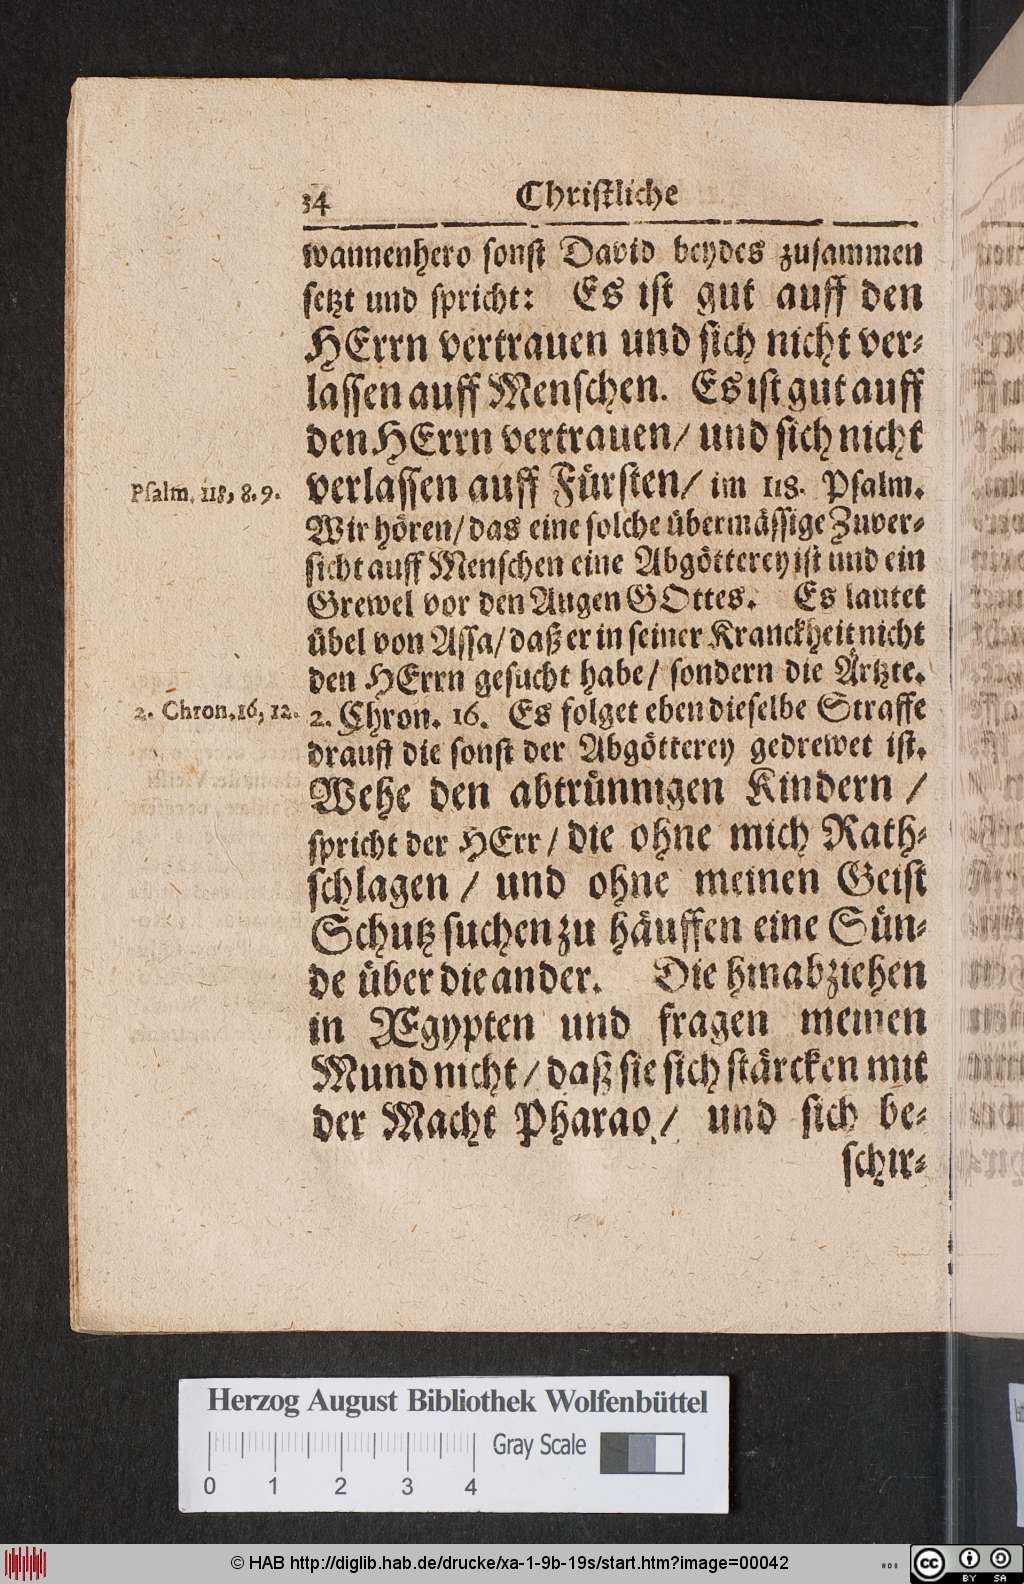 34 Christliche
wannenhero sonst David beydes zusammen
setzt und spricht: Es ist gut auff den
HErrn vertrauen und sich nicht ver⸗
lassen auff Menschen. Es ist gut auff
den HErrn vertrauen/ und sich nicht
Psalm. 118, 8. 9.
verlassen auff Fürsten/ im 118. Psalm.
Wir hören/ das eine solche übermässige Zuver⸗
sicht auff Menschen eine Abgötterey ist und ein
Grewel vor den Augen GOttes. Es lautet
übel von Assa/ daß er in seiner Kranckheit nicht
den HErrn gesucht habe/ sondern die Ärtzte.
2. Chron. 16, 12.
2. Chron. 16. Es folget eben dieselbe Straffe
drauff die sonst der Abgötterey gedrewet ist.
Wehe den abtrünnigen Kindern /
spricht der HErr / die ohne mich Rath⸗
schlagen / und ohne meinen Geist
Schutz suchen zu häuffen eine Sün⸗
de über die ander. Die hinabziehen
in Ægypten und fragen meinen
Mund nicht / daß sie sich stärcken mit
der Macht Pharao / und sich be⸗
schir⸗
Herzog August Bibliothek Wolfenbüttel
Gray Scale
0 1 2 3 4
© HAB http://diglib.hab.de/drucke/xa-1-9b-19s/start.htm?image=00042
cc BY SA